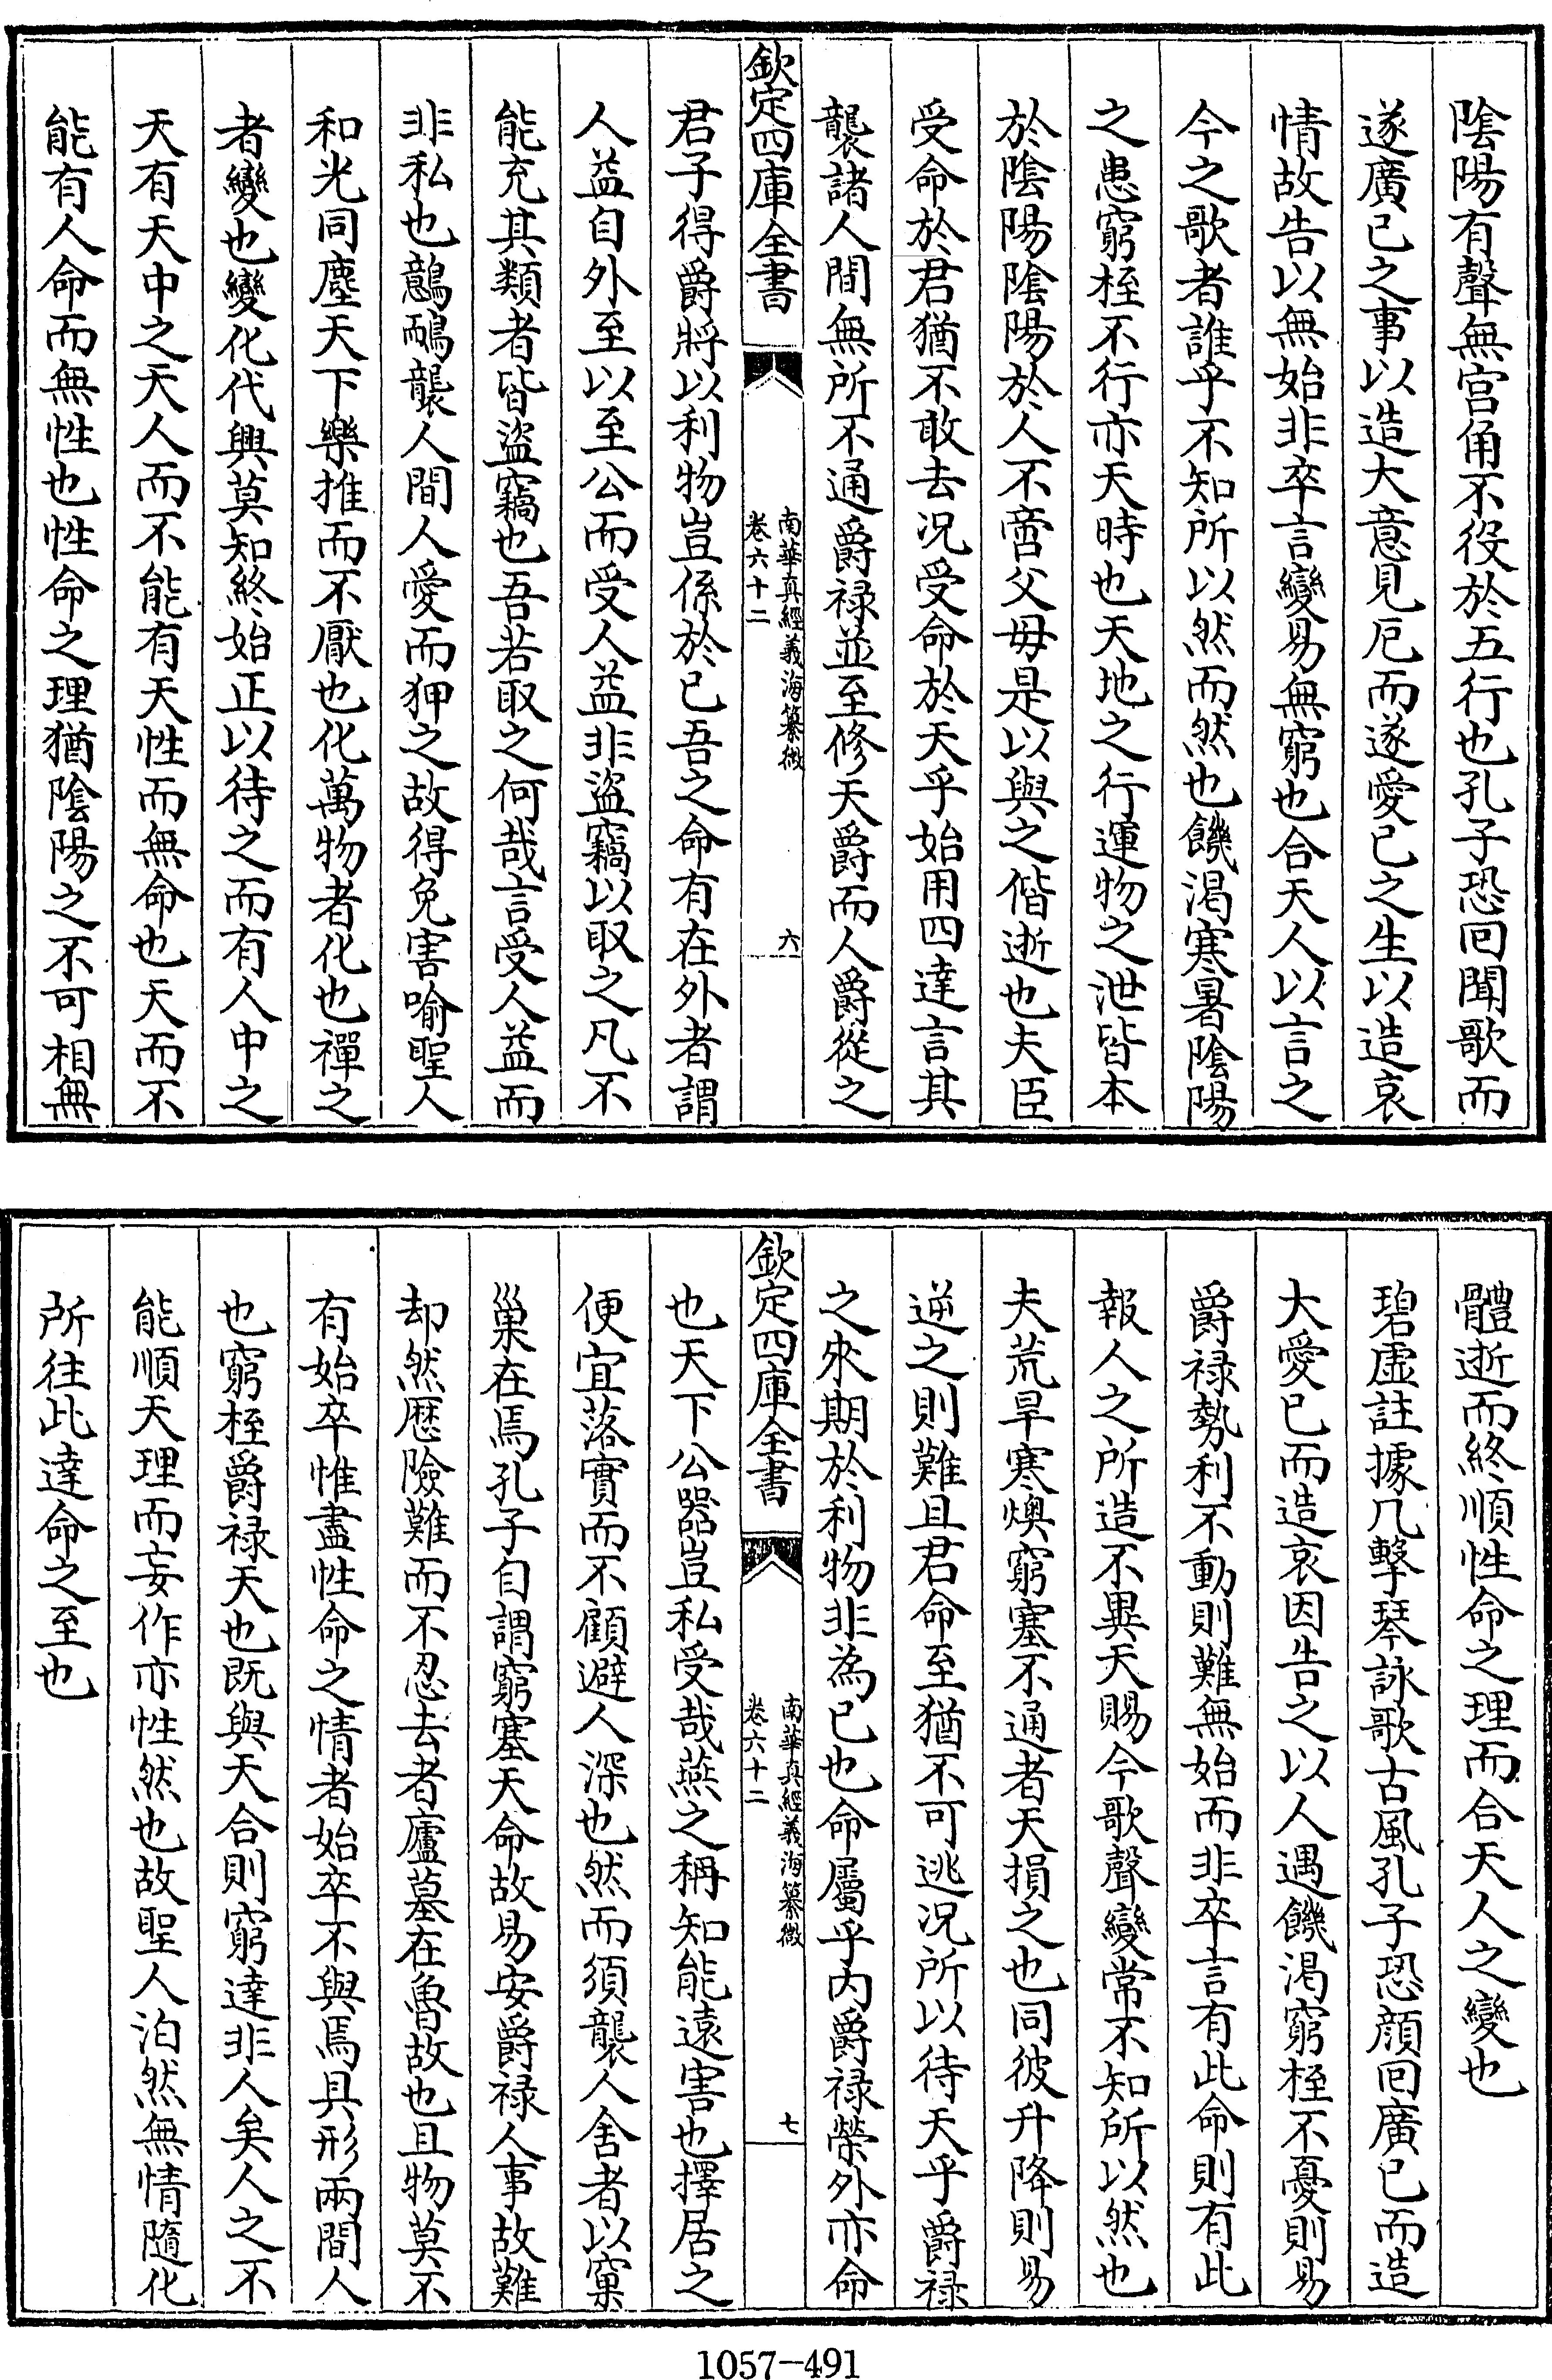 陰陽有聲無宫角不役於五行也孔子恐回聞歌而
遂廣已之事以造大意見厄而遂愛已之生以造哀
情故告以無始非卒言變易無窮也合天人以言之
今之歌者誰乎不知所以然而然也饑渴寒暑陰陽
之患窮桎不行亦天時也天地之行運物之泄皆本
於陰陽陰陽於人不啻父母是以與之偕逝也夫臣
受命於君猶不敢去况受命於天乎始用四達言其
襲諸人間無所不通爵禄並至修天爵而人爵從之
欽定四庫全書
南華真經義海纂微
卷六十二
六
君子得爵將以利物豈係於已吾之命有在外者謂
人益自外至以至公而受人益非盜竊以取之凡不
能充其類者皆盜竊也吾若取之何哉言受人益而
非私也鷾鴯襲人間人愛而狎之故得免害喻聖人
和光同塵天下樂推而不厭也化萬物者化也禪之
者變也變化代興莫知終始正以待之而有人中之
天有天中之天人而不能有天性而無命也天而不
能有人命而無性也性命之理猶陰陽之不可相無
體逝而終順性命之理而合天人之變也
碧虛註據几擊琴詠歌古風孔子恐顔回廣已而造
大愛已而造哀因告之以人遇饑渴窮桎不憂則易
爵禄勢利不動則難無始而非卒言有此命則有此
報人之所造不異天賜今歌聲變常不知所以然也
夫荒旱寒燠窮塞不通者天損之也同彼升降則易
逆之則難且君命至猶不可逃况所以待天乎爵禄
之來期於利物非為已也命屬乎内爵禄榮外亦命
欽定四庫全書
南華真經義海纂微
卷六十二
七
也天下公器豈私受哉燕之稱知能遠害也擇居之
便宜落實而不顧避人深也然而須襲人舍者以窠
巢在焉孔子自謂窮塞天命故易安爵禄人事故難
却然歷險難而不忍去者廬墓在魯故也且物莫不
有始卒惟盡性命之情者始卒不與焉具形兩間人
也窮桎爵禄天也既與天合則窮達非人矣人之不
能順天理而妄作亦性然也故聖人泊然無情隨化
所往此達命之至也
1057-491